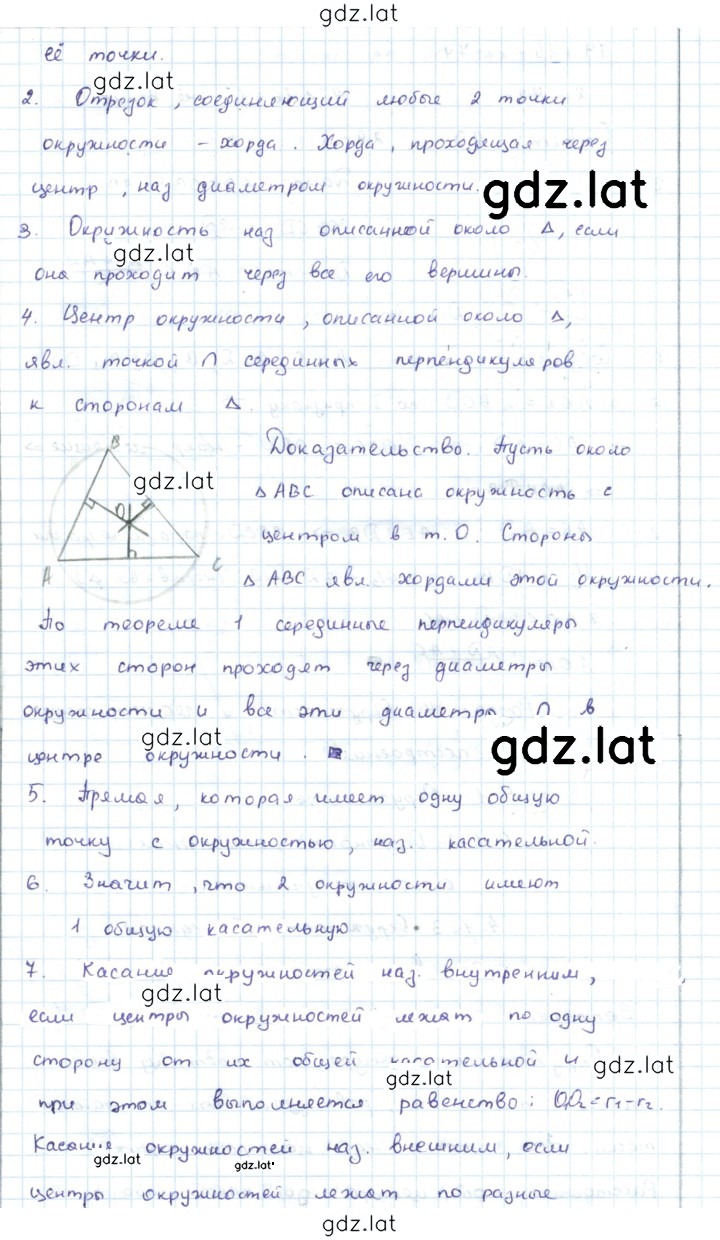 gdz.lat
её точки.
gdz.lat
2. Отрезок, соединяющий любые 2 точки
окружности - хорда. Хорда, проходящая через
центр, наз диаметром окружности.
gdz.lat
3. Окружность наз описанной около Δ, если
gdz.lat
она проходит через все его вершины.
4. Центр окружности, описанной около Δ,
явл. точкой ∩ серединных перпендикуляров
к сторонам Δ.
B
gdz.lat
O
A
C
Доказательство. Пусть около
Δ ABC описана окружность с
центром в т. O. Стороны
Δ ABC явл. хордами этой окружности.
По теореме 1 серединные перпендикуляры
этих сторон проходят через диаметры
окружности и все эти диаметры ∩ в
gdz.lat
gdz.lat
центре окружности.
5. Прямая, которая имеет одну общую
точку с окружностью, наз. касательной.
6. Значит, что 2 окружности имеют
1 общую касательную
7. Касание окружностей наз. внутренним,
gdz.lat
если центры окружностей лежат по одну
сторону от их общей касательной и
gdz.lat
gdz.lat
при этом выполняется равенство: O₁O₂=r₁-r₂.
Касание окружностей наз. внешним, если
gdz.lat
gdz.lat
центры окружностей лежат по разные
gdz.lat